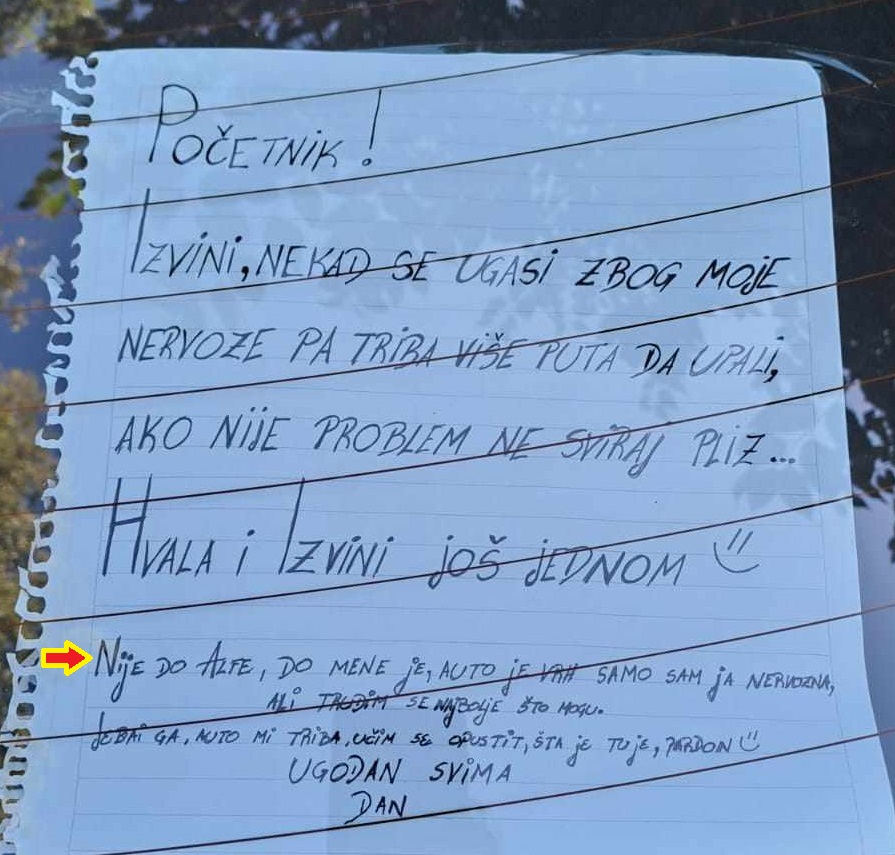 POČETNIK!
IZVINI, NEKAD SE UGASI ZBOG MOJE
NERVOZE PA TRIBA VIŠE PUTA DA UPALI,
AKO NIJE PROBLEM NE SVIRAJ PLIZ...
HVALA I IZVINI JOŠ JEDNOM
NIJE DO ALFE, DO MENE JE, AUTO JE VRH SAMO SAM JA NERVOZNA,
ALI TRUDIM SE NAJBOLJE ŠTO MOGU.
JEBAI GA, AUTO MI TRIBA, UČIM SE OPUSTIT, ŠTA JE TU JE, PARDON
UGODAN SVIMA
DAN